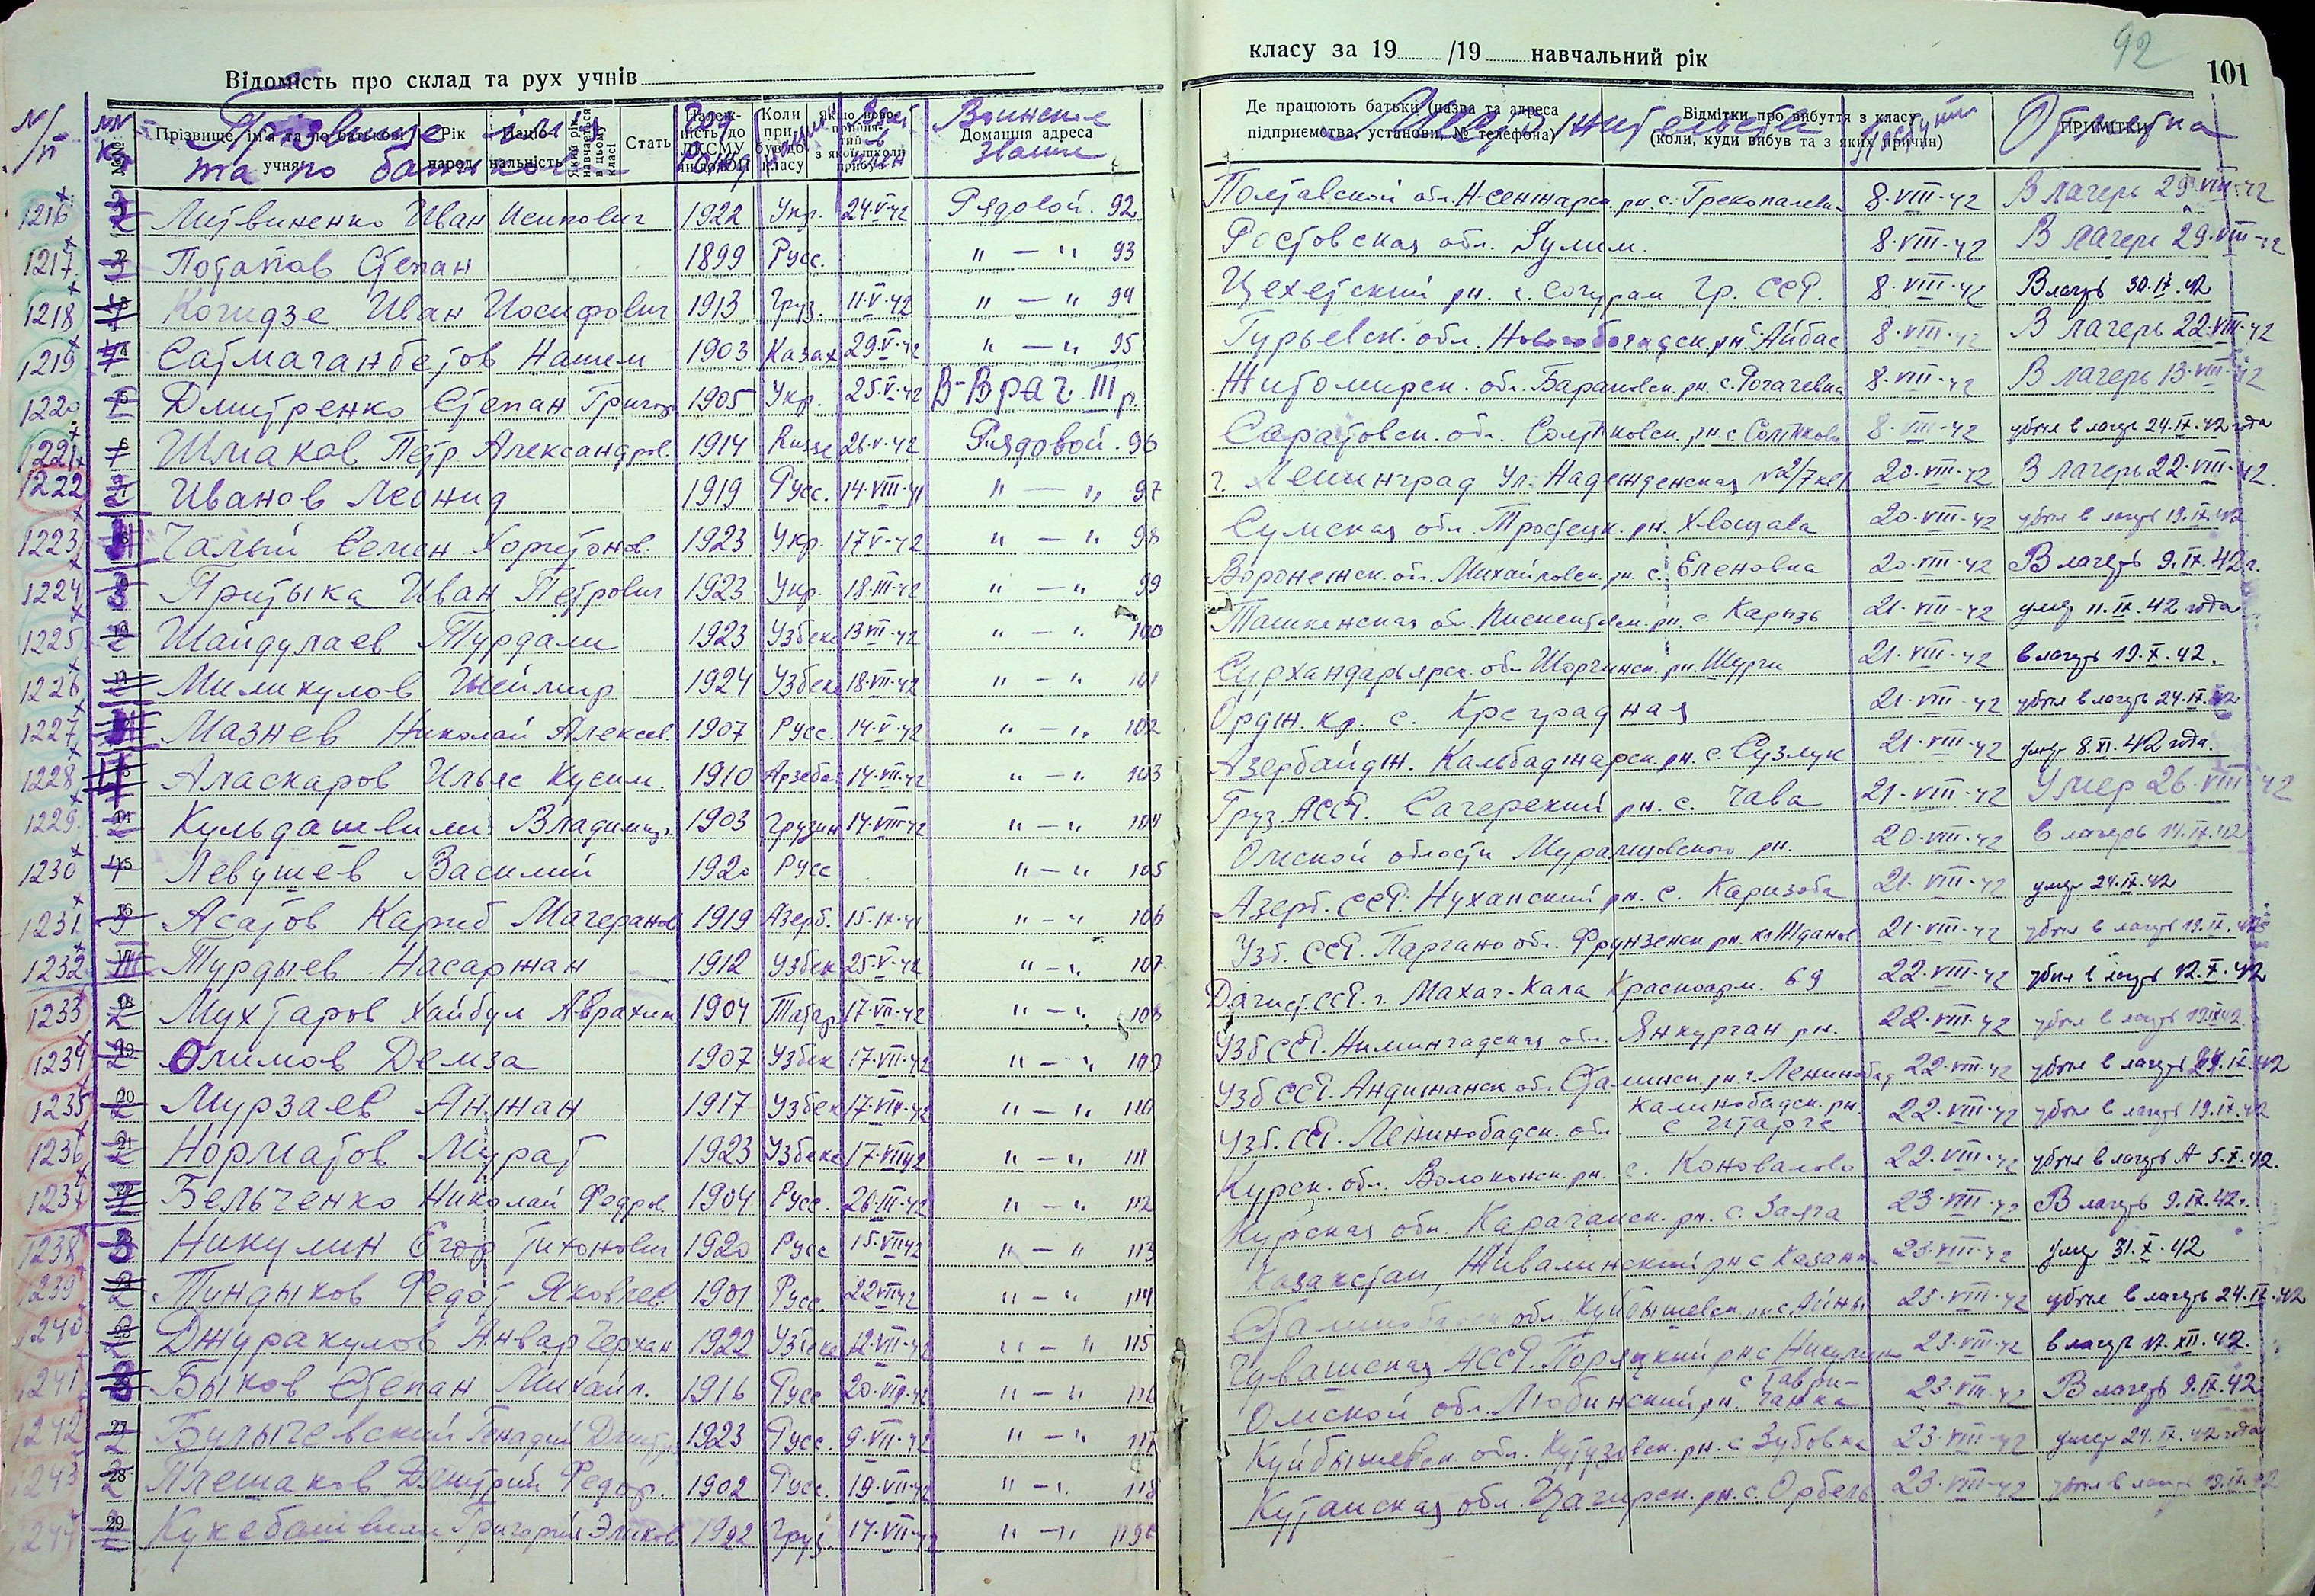 Відомість про склад та рух учнів
класу за 19 /19 навчальний рік
92
101
N/п
Прізвище, ім'я та по батькові учня
Рік народ.
Національність
Який рік навчається в цьому класі
Стать
Коли прибув до класу
Домашня адреса
Де працюють батьки (назва та адреса підприємства, установи, № телефона)
Відмітки про вибуття з класу (коли, куди вибув та з яких причин)
ПРИМІТКИ
Прізвище ім'я та по батькові
Год рожд
Воинское звание
Отметка
1216 Литвиненко Иван Исипович 1922 Укр. 24·V·42 Рядовой. 92 Полтавской обл. Н-сенжарск. рн. с. 8·VIII·42 В лагерь 29·VIII·42
1217 2 Потапов Степан 1899 Русс. " — " 93 Ростовская обл. 8·VIII·42 В лагерь 29·VIII·42
1218 3 Когидзе Иван Иосифович 1913 Груз. 11·V·42 " — " 94 Цехетский рн. с. Гр. ССР. 8·VIII·42 В лагерь 30.IX.42
1219 4 Сатмаганбетов Нашем 1903 Казах 29·V·42 " — " 95 Гурьевск. обл. Новобогадск. рн. Айбас 8·VIII·42 В лагерь 22·VIII·42
1220 5 Дмитренко Степан Григор. 1905 Укр. 25·V·42 В-Врач III р. Житомирск. обл. Барановск. рн. с. Рогачевка 8·VIII·42 В лагерь 13·VIII·42
1221 6 Шмаков Петр Александров. 1914 Русс 26·V·42 Рядовой. 96 Саратовск. обл. 8·VIII·42 убыл в лагерь 24.IX.42 года
1222 7 Иванов Леонид 1919 Русс. 14·VIII·41 " — " 97 г. Ленинград Ул. Надежденская 20·VIII·42 В лагерь 22·VIII·42.
1223 8 Чалый Семен Харитонов. 1923 Укр. 17·V·42 " — " 98 Сумская обл. Тростецк. рн. Хвощава 20·VIII·42 убыл в лагерь 19.IX.42
1224 9 Притыка Иван Петрович 1923 Укр. 18·III·42 " — " 99 Воронежск. обл. Михайловск. рн. с. Еленовка 20·VIII·42 В лагерь 9.IX.42 г.
1225 10 Шайдулаев Турдали 1923 Узбек 13·VII·42 " — " 100 Ташкенская обл. Пискентск. рн. с. Карызь 21·VIII·42 умер 11.IX.42 года
1226 11 Миликулов 1924 Узбек 18·VII·42 " — " 101 Сурхандарьярск. обл. Шорчинск. рн. Шурчи 21·VIII·42 в лагерь 19.X.42.
1227 12 Мазнев Николай Алексеев. 1907 Русс. 14·V·42 " — " 102 Ордж. кр. с. 21·VIII·42 убыл в лагерь 24.IX.42
1228 13 Аласкаров Ильяс Кусим. 1910 Азеба. 14·VII·42 " — " 103 Азербайдж. Кальбаджарск. рн. с. Сузлук 21·VIII·42 умер 8.XI.42 года.
1229 14 Кульдашвили Владимир. 1903 Грузин 14·VIII·42 " — " 104 Груз. АССР. Сагерский рн. с. Чава 21·VIII·42 Умер 26·VIII·42
1230 15 Левушев Василий 1920 Русс " — " 105 Омской области Мурамцовского рн. 20·VIII·42 в лагерь 14.IX.42
1231 16 Асатов Кариб Магеранов 1919 Азерб. 15·IX·41 " — " 106 Азерб. ССР. Нуханский рн. с. Каризоба 21·VIII·42 умер 24.IX.42
1232 17 Турдыев Насаржан 1912 Узбек 25·V·42 " — " 107 Узб. ССР. Паргано обл. Фрунзенск рн. Жданов 21·VIII·42 убыл в лагерь 19.IX.42
1233 18 Мухтаров Хайбул Абрахим 1904 Татар. 17·VII·42 " — " 108 Дагист. ССР. г. Махач-Кала Красноарм. 69 22·VIII·42 убыл в лагерь 12.X.42
1234 19 Олимов Демза 1907 Узбек 17·VII·42 " — " 109 Узб ССР. Намингадская обл. Янкурган рн. 22·VIII·42 убыл в лагерь 19.IX.42.
1235 20 Мурзаев Анжан 1917 Узбек 17·VII·42 " — " 110 Узб ССР. Андижанск обл. Сталинск рн. г. Ленинабад 22·VIII·42 убыл в лагерь 24.IX.42
1236 21 Норматов Мурат 1923 Узбек 17·VII·42 " — " 111 Узб. ССР. Ленинобадск. обл. Калинобадск. рн. с 22·VIII·42 убыл в лагерь 19.IX.42
1237 22 Бельченко Николай Федров. 1904 Русс. 26·III·42 " — " 112 Курск. обл. Волоконск. рн. с. Коновалово 22·VIII·42 убыл в лагерь А 5.X.42.
1238 Никулин Егор Тихонович 1920 Русс 15·VII·42 " — " 113 Курская обл. Карачанск. рн. с. 23·VIII·42 В лагерь 9.IX.42 г.
1239 24 Тундыков Федот Яковлев. 1901 Русс. 22·VII·42 " — " 114 Казахстан, рн с Казанка 23·VIII·42 умер 31.X.42
1240 25 Джуракулов Анвар Черхан 1922 Узбек 12·VII·42 " — " 115 Сталинобадск обл. Куйбышевск. рн с Айны 23·VIII·42 убыл в лагерь 24.IX.42
1241 Быков Степан Михайл. 1916 Русс 20·VII·42 " — " 116 Чувашская АССР. Порецкий рн с Никулино 23·VIII·42 в лагерь 17.XII.42.
1242 27 Булычевский Генадий Дмитр. 1923 Русс. 9·VII·42 " — " 117 Омской обл. Любинский рн. с Таври-чанка 23·VIII·42 В лагерь 9.IX.42
1243 28 Плешаков Дмитрий Федор. 1902 Русс. 19·VII·42 " — " 118 Куйбышевск. обл. Кутузовск. рн. с Зубовка 23·VIII·42 умер 24.IX.42 года
1244 29 Кукебашвили Григорий 1922 Груз. 17·VII·42 " — " 119 Кутаиская обл. Цагирск. рн. с. Орбель 23·VIII·42 убыл в лагерь 19.IX.42